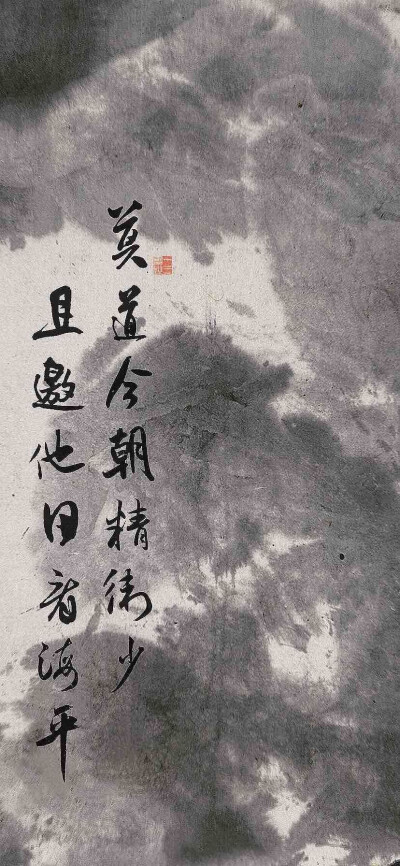 莫道今朝精衛少
且邀他日看海平